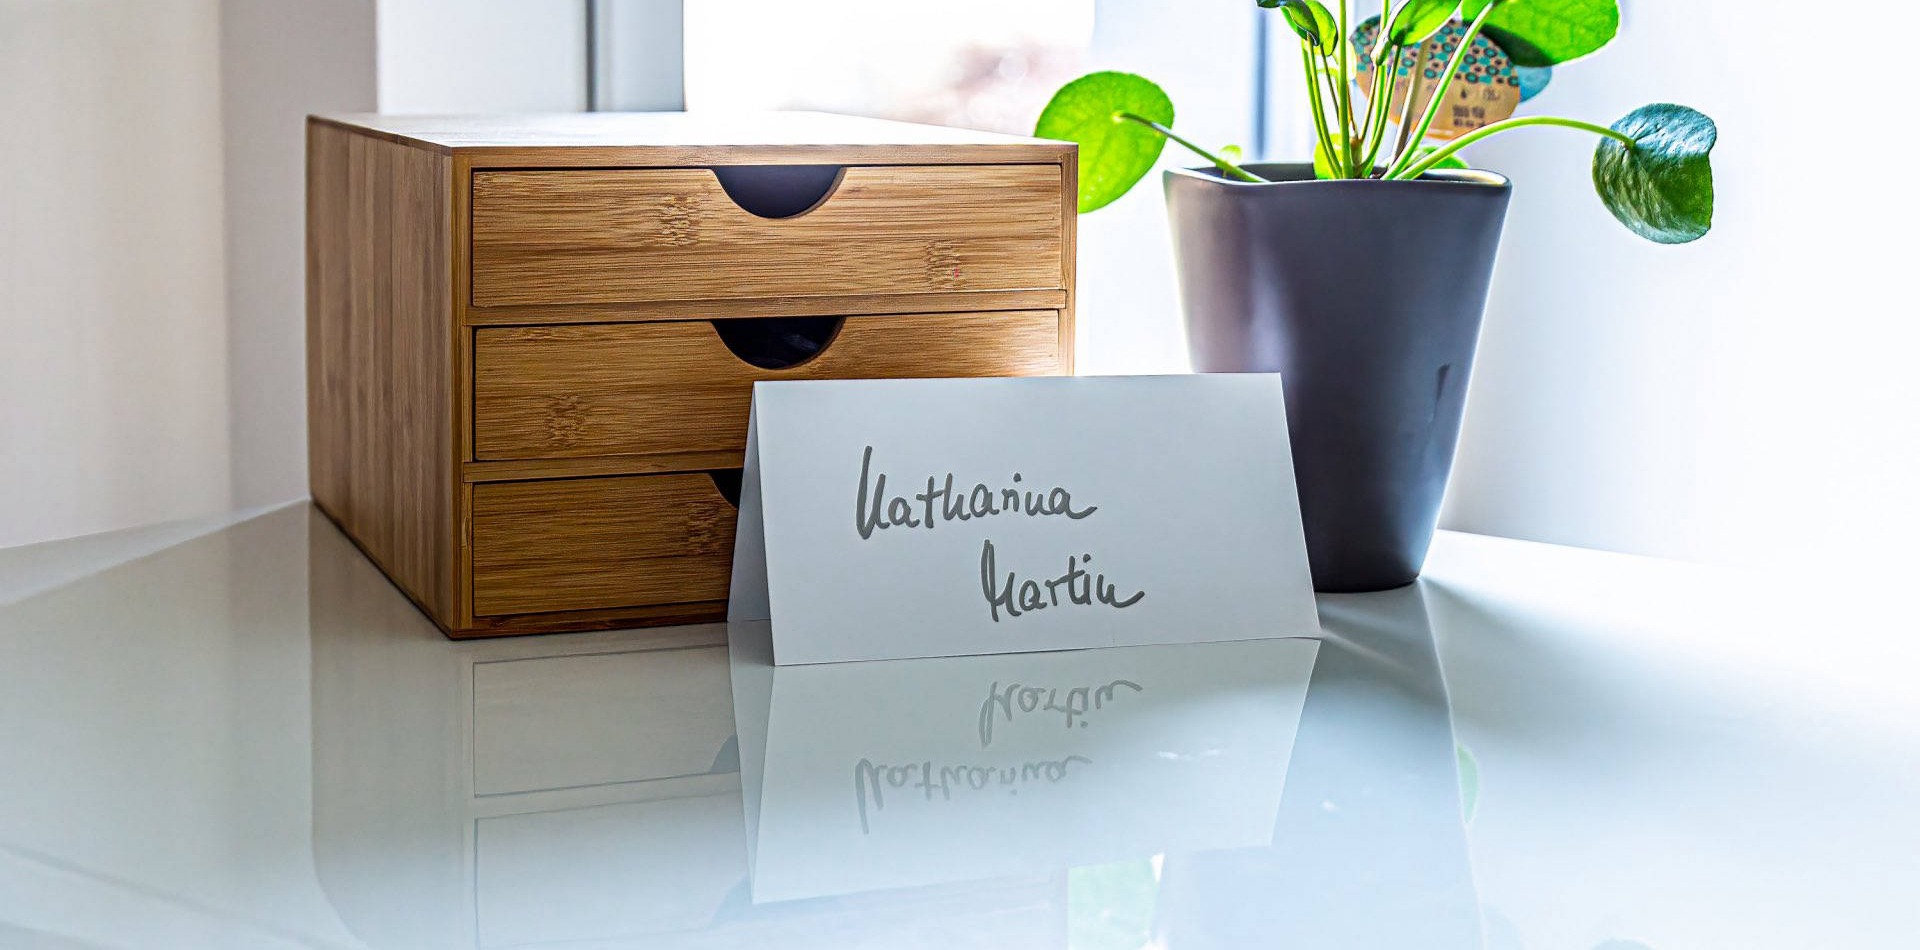 Katharina
Martin